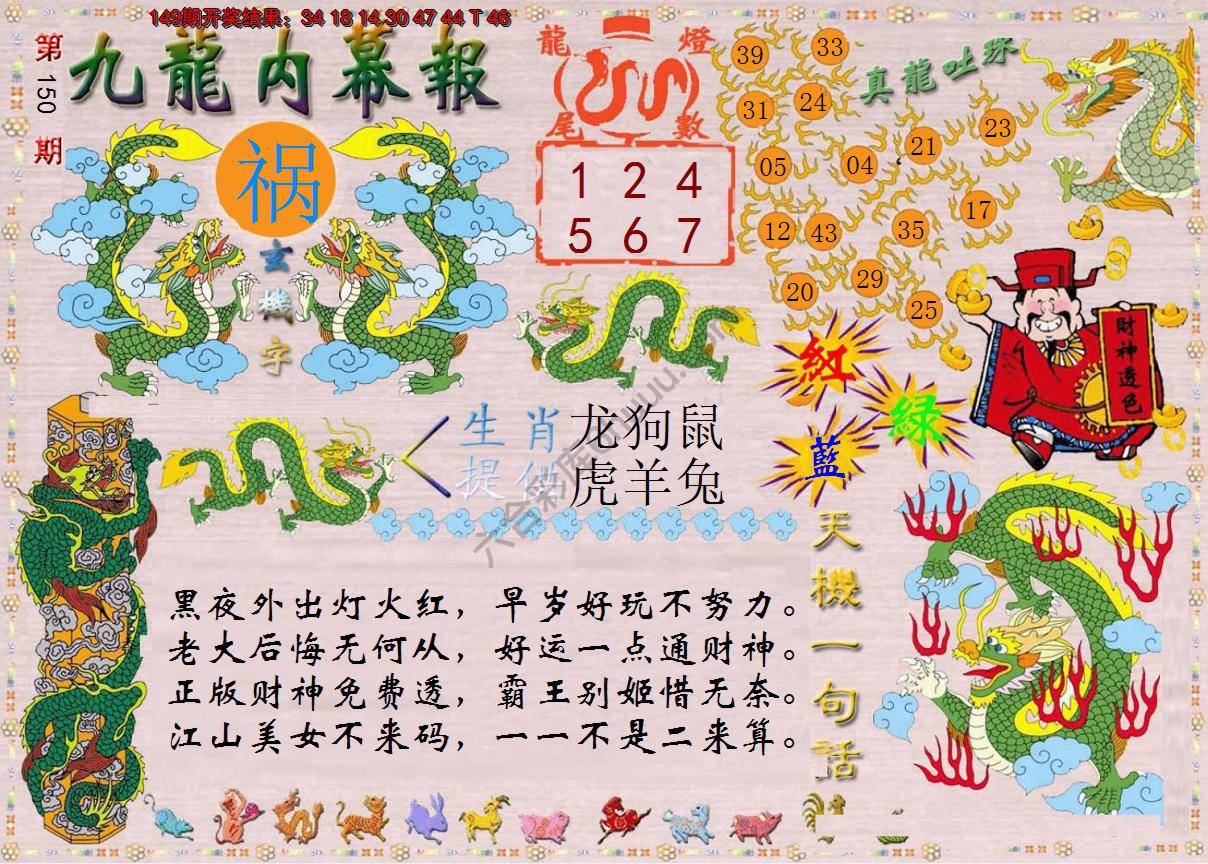 149期开奖结果：34 18 14 30 47 44 T 46
第150期
九龍内幕報
祸
玄機字
龍燈
尾數
1 2 4
5 6 7
真龍吐珠
39
33
31
24
05
04
21
23
12
43
35
17
20
29
25
財神透色
紅
綠
藍
生肖
提供
龙狗鼠
虎羊兔
天機一句話
黑夜外出灯火红，早岁好玩不努力。
老大后悔无何从，好运一点通财神。
正版财神免费透，霸王别姬惜无奈。
江山美女不来码，一一不是二来算。